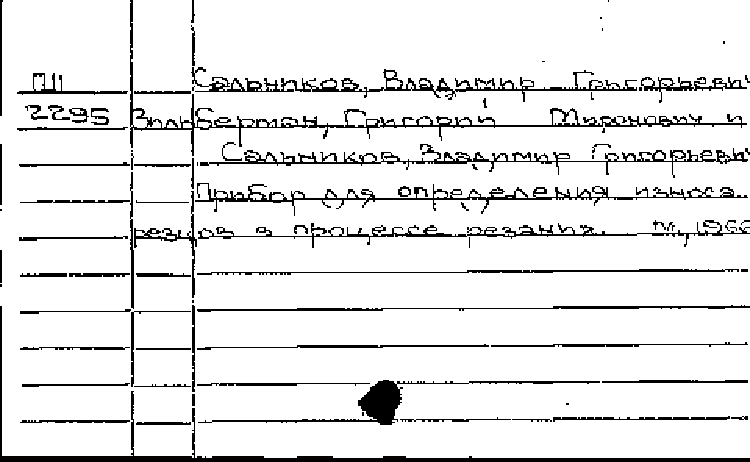 П11 Сальников, Владимир Григорьевич
2295 Зильберман, Григорий Миронович и
Сальников, Владимир Григорьевич
Прибор для определения износа
резцов в процессе резания. М., 1966